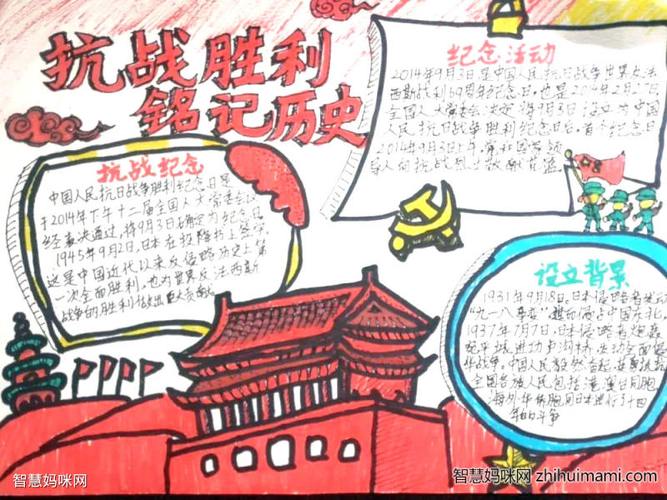 抗战胜利
铭记历史
纪念活动
2014年9月3日是中国人民抗日战争世界反法
西斯战利69周年纪念日。也是2014年2月27日
全国人大常委会决定将9月3日设立为中国
人民抗日战争胜利纪念日后,首个纪念日
2014年9月3日上午
导人向抗战烈士敬献花篮
抗战纪念
中国人民抗日战争胜利纪念日是
于2014年下午十二届全国人大常委会
经表决通过,将9月3日确定为纪念日
1945年9月2日,日本在投降书上签字
这是中国近代以来反侵略历史上第
一次全面胜利,也为世界反法西斯
战争的胜利做出巨大贡献
设立背景
1931年9月18日,日本侵略者发动
"九一八事变",中国东北。
1937年7月7日,日本侵略者炮轰
宛平城进功卢沟桥,发动全面侵
华战争。中国人民毅然奋起,
全国各族人民包括港澳台同胞
海外华侨胞同日本进行了十四
年的斗争
智慧妈咪网
智慧妈咪网 zhihuimami.com